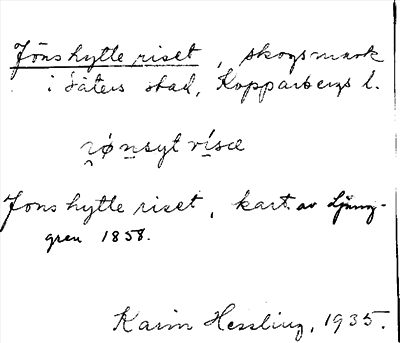 Jönshytteriset, skogsmark
i Säters stad, Kopparbergs l.
Jönshytteriset, kart. av Ljung-
gren 1858.
Karin Hessling, 1935.